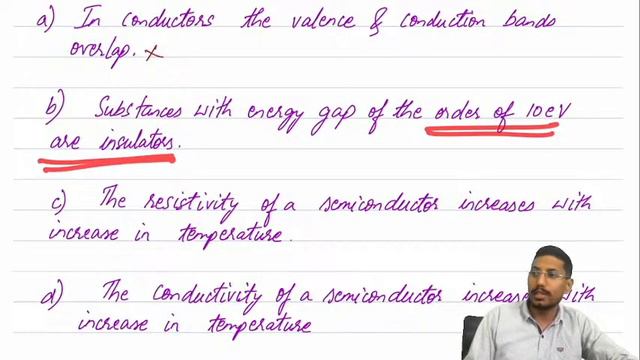 a) In conductors the valence & conduction bands
overlap. ×
b) Substances with energy gap of the order of 10eV
are insulators.
c) The resistivity of a semiconductor increases with
increase in temperature.
d) The conductivity of a semiconductor increases with
increase in temperature